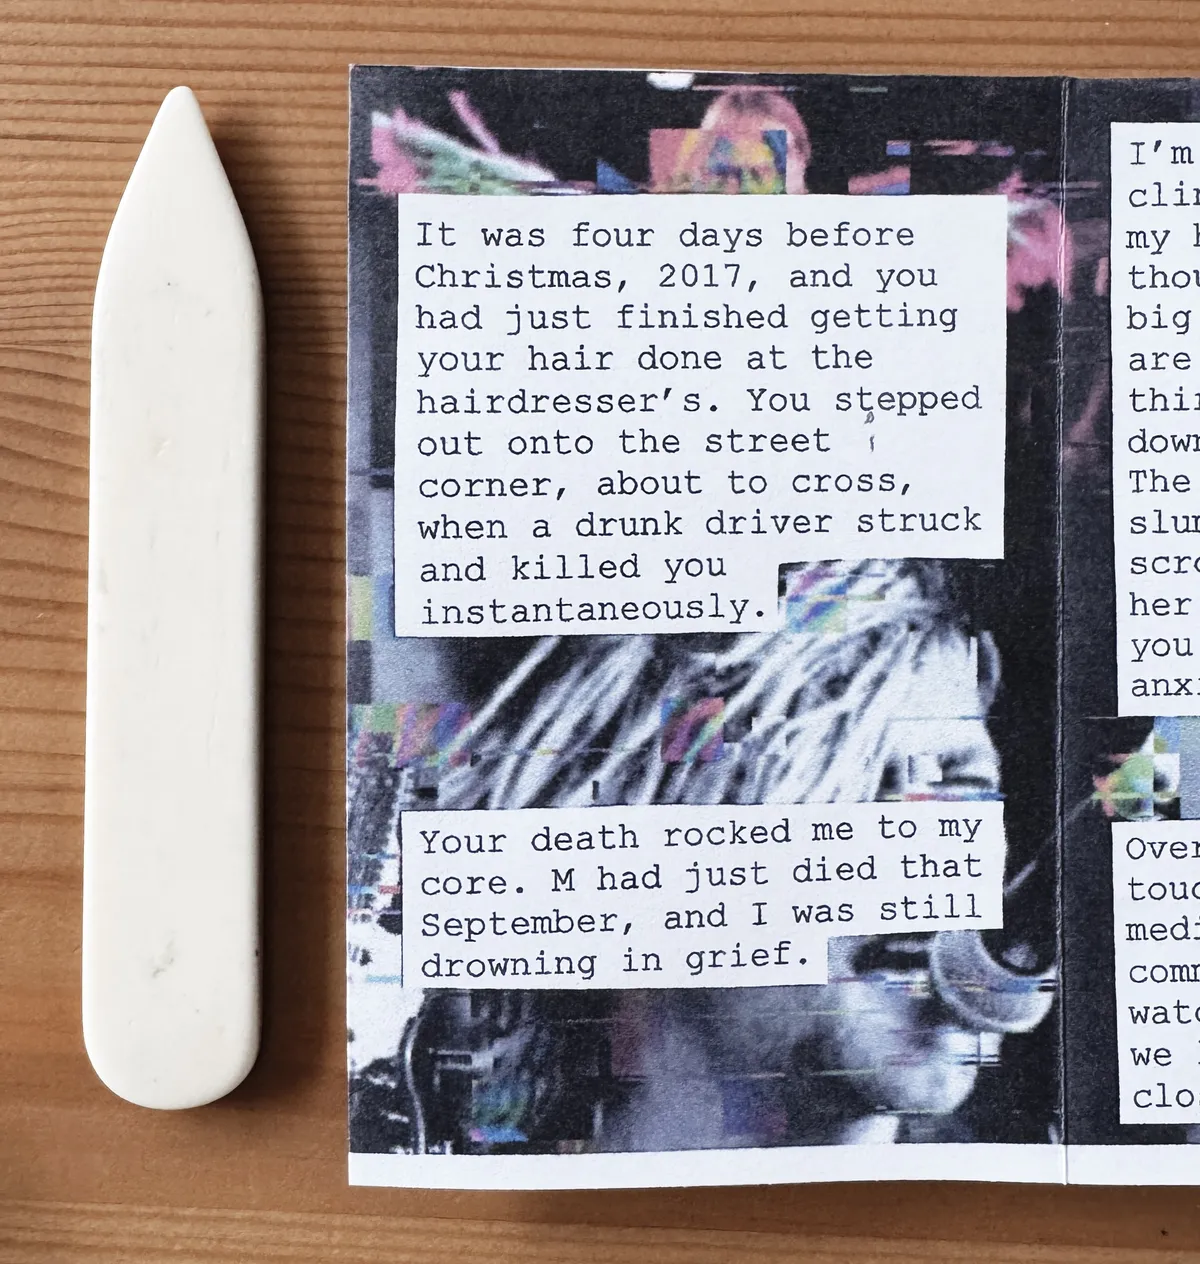 It was four days before
Christmas, 2017, and you
had just finished getting
your hair done at the
hairdresser's. You stepped
out onto the street
corner, about to cross,
when a drunk driver struck
and killed you
instantaneously.
Your death rocked me to my
core. M had just died that
September, and I was still
drowning in grief.
I'm
my
big
are
The
her
you
Over
we